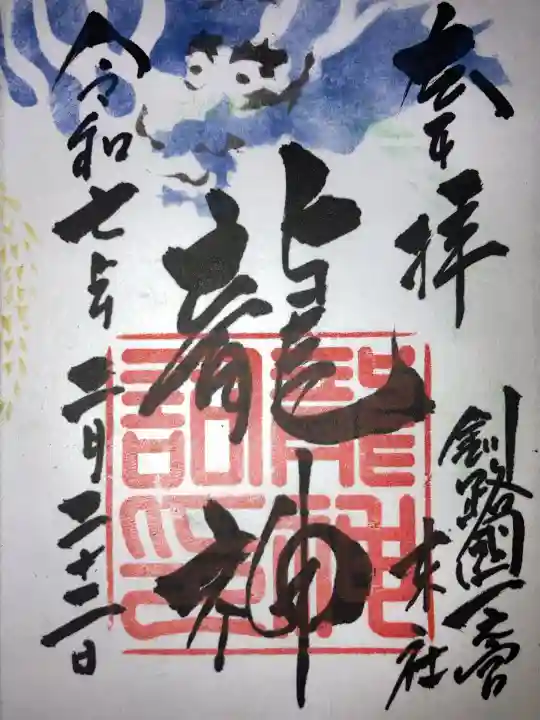 奉拝
釧路國一之宮
末社
龍神
令和七歳二月二十二日